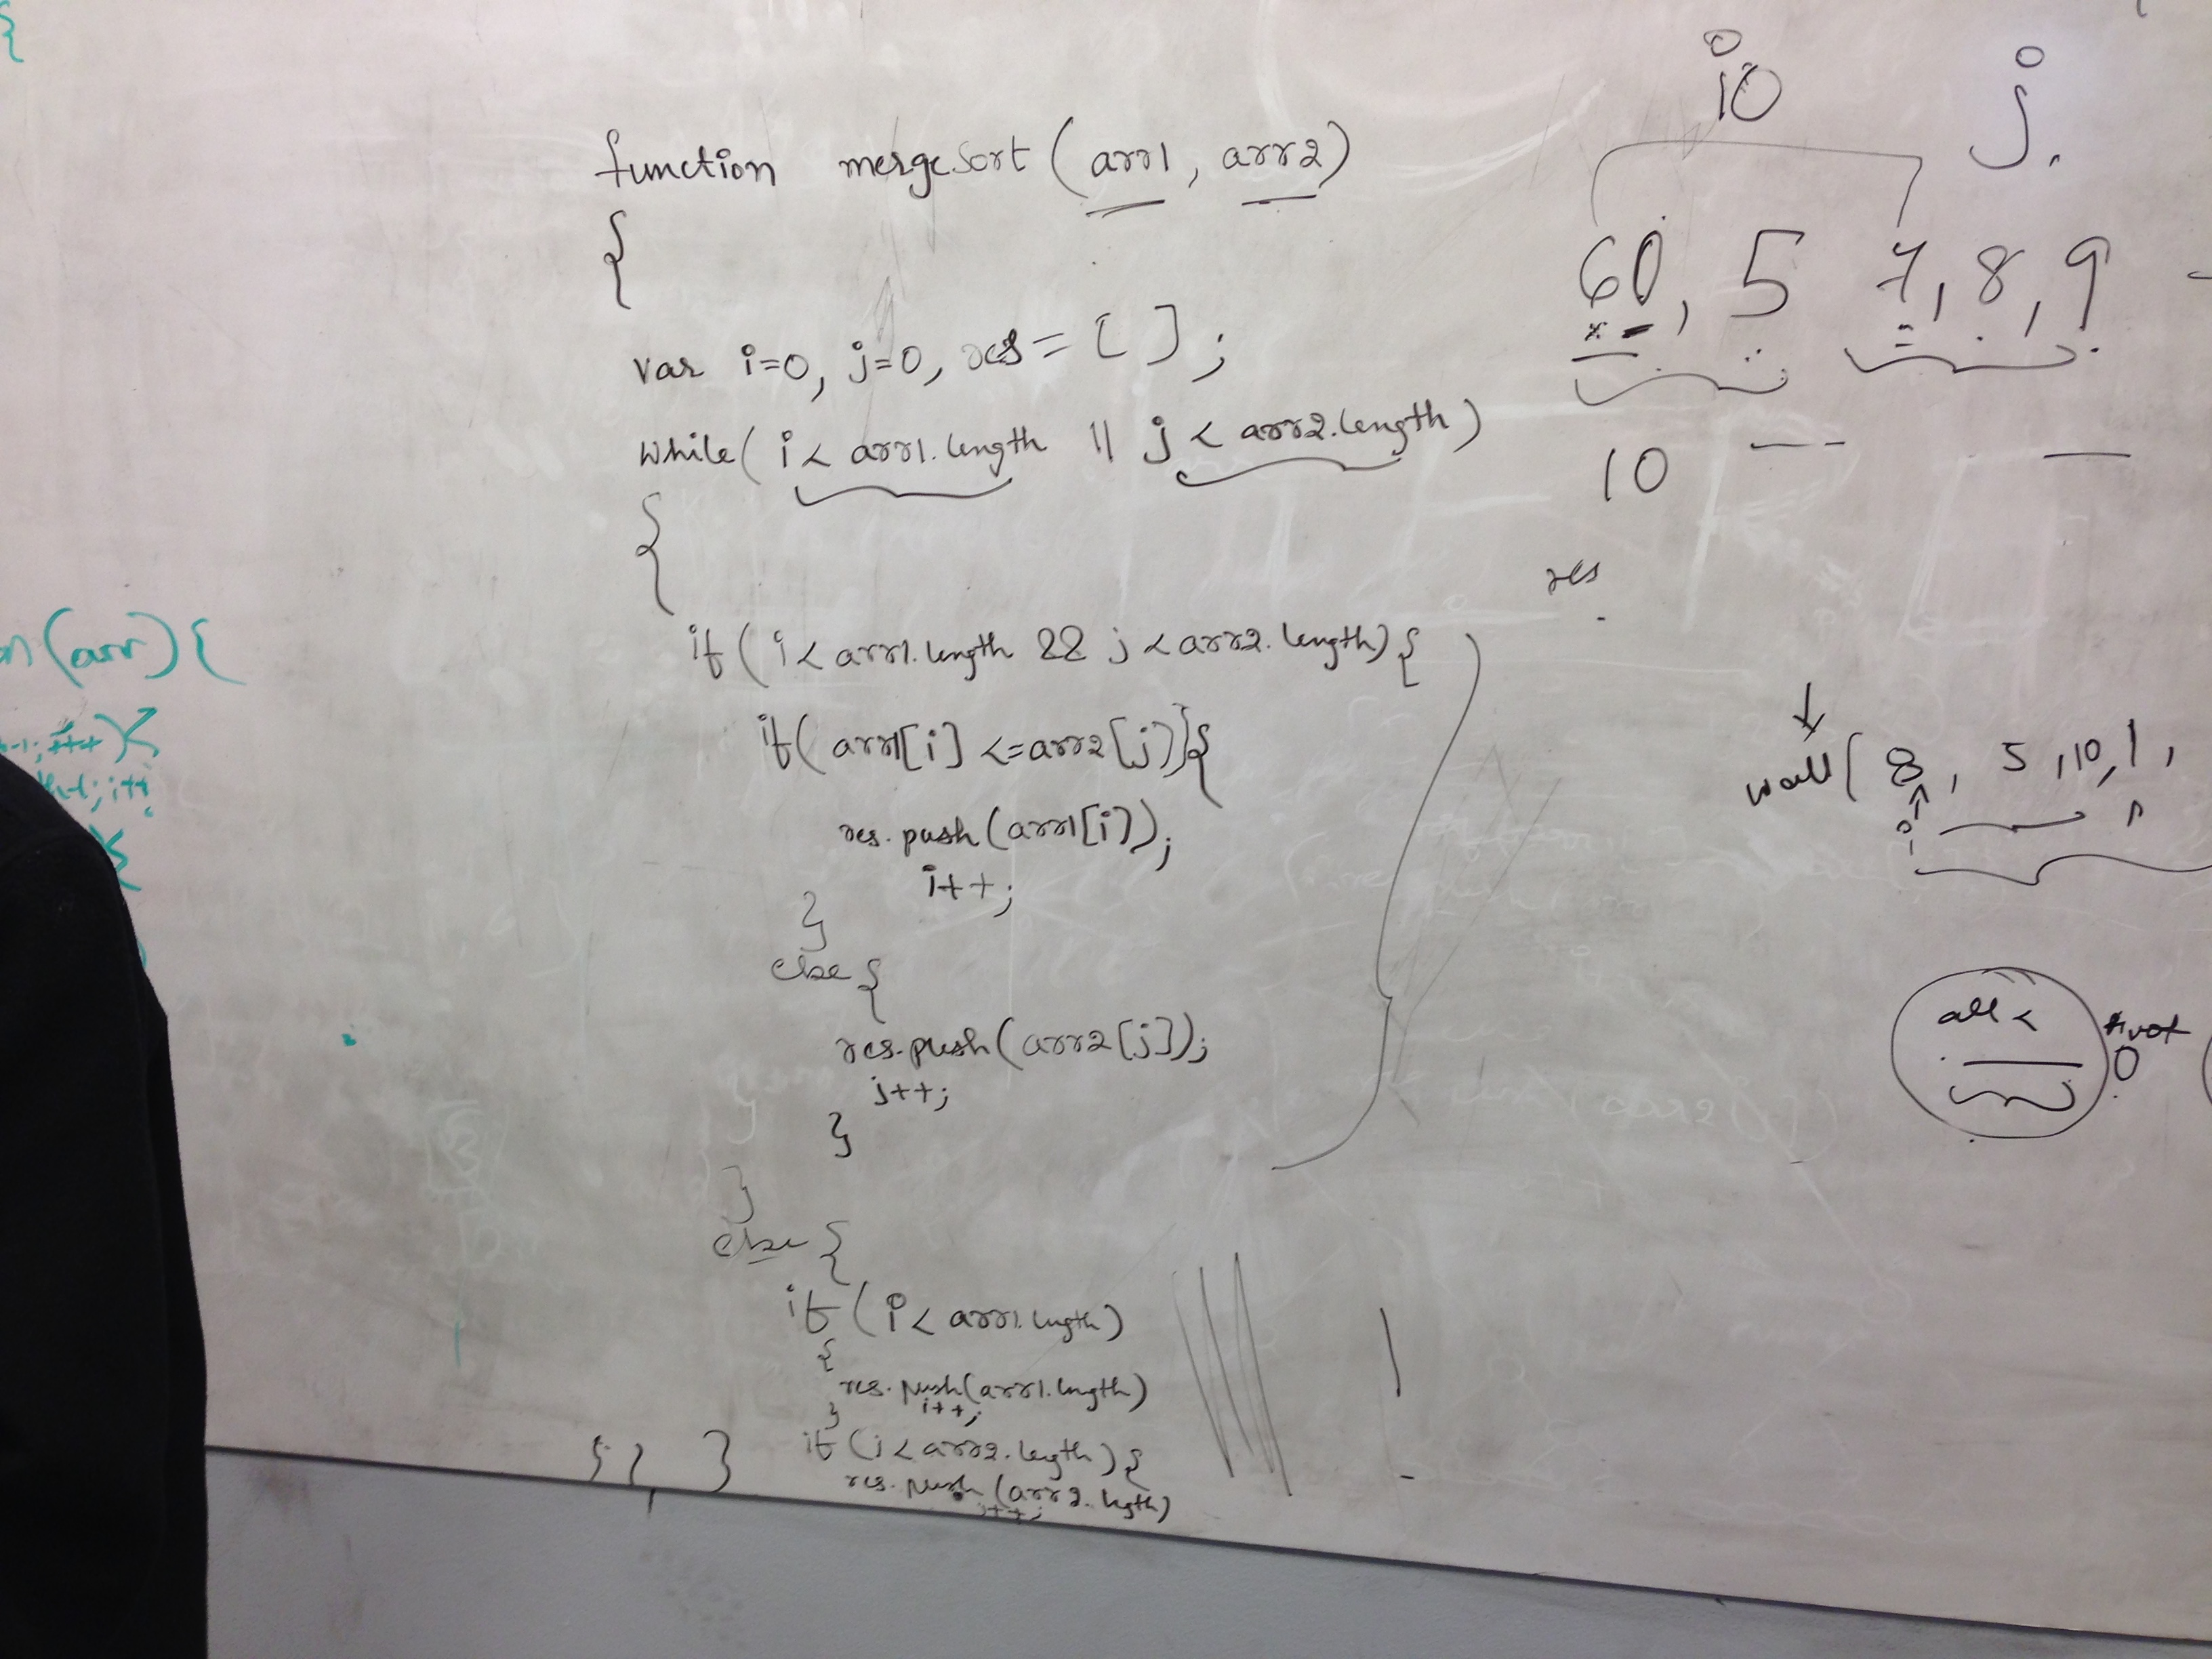 {
function mergeSort (arr1, arr2)
{
var i=0, j=0, res = [ ] ;
while( i < arr1.length || j < arr2.length )
{
if ( i < arr1.length && j < arr2.length) {
if( arr1[i] <= arr2[j]){
res.push(arr1[i]);
i++;
}
else {
res.push(arr2[j]);
j++;
}
}
else {
if ( i < arr1.length)
{
res.push(arr1.length)
i++;
}
if (j < arr2.length) {
res.push (arr2.length)
j++;
}
(arr) {
i++
j
60, 5 7, 8, 9
10
res
wall ( 8, 5, 10, 1,
all <
pivot